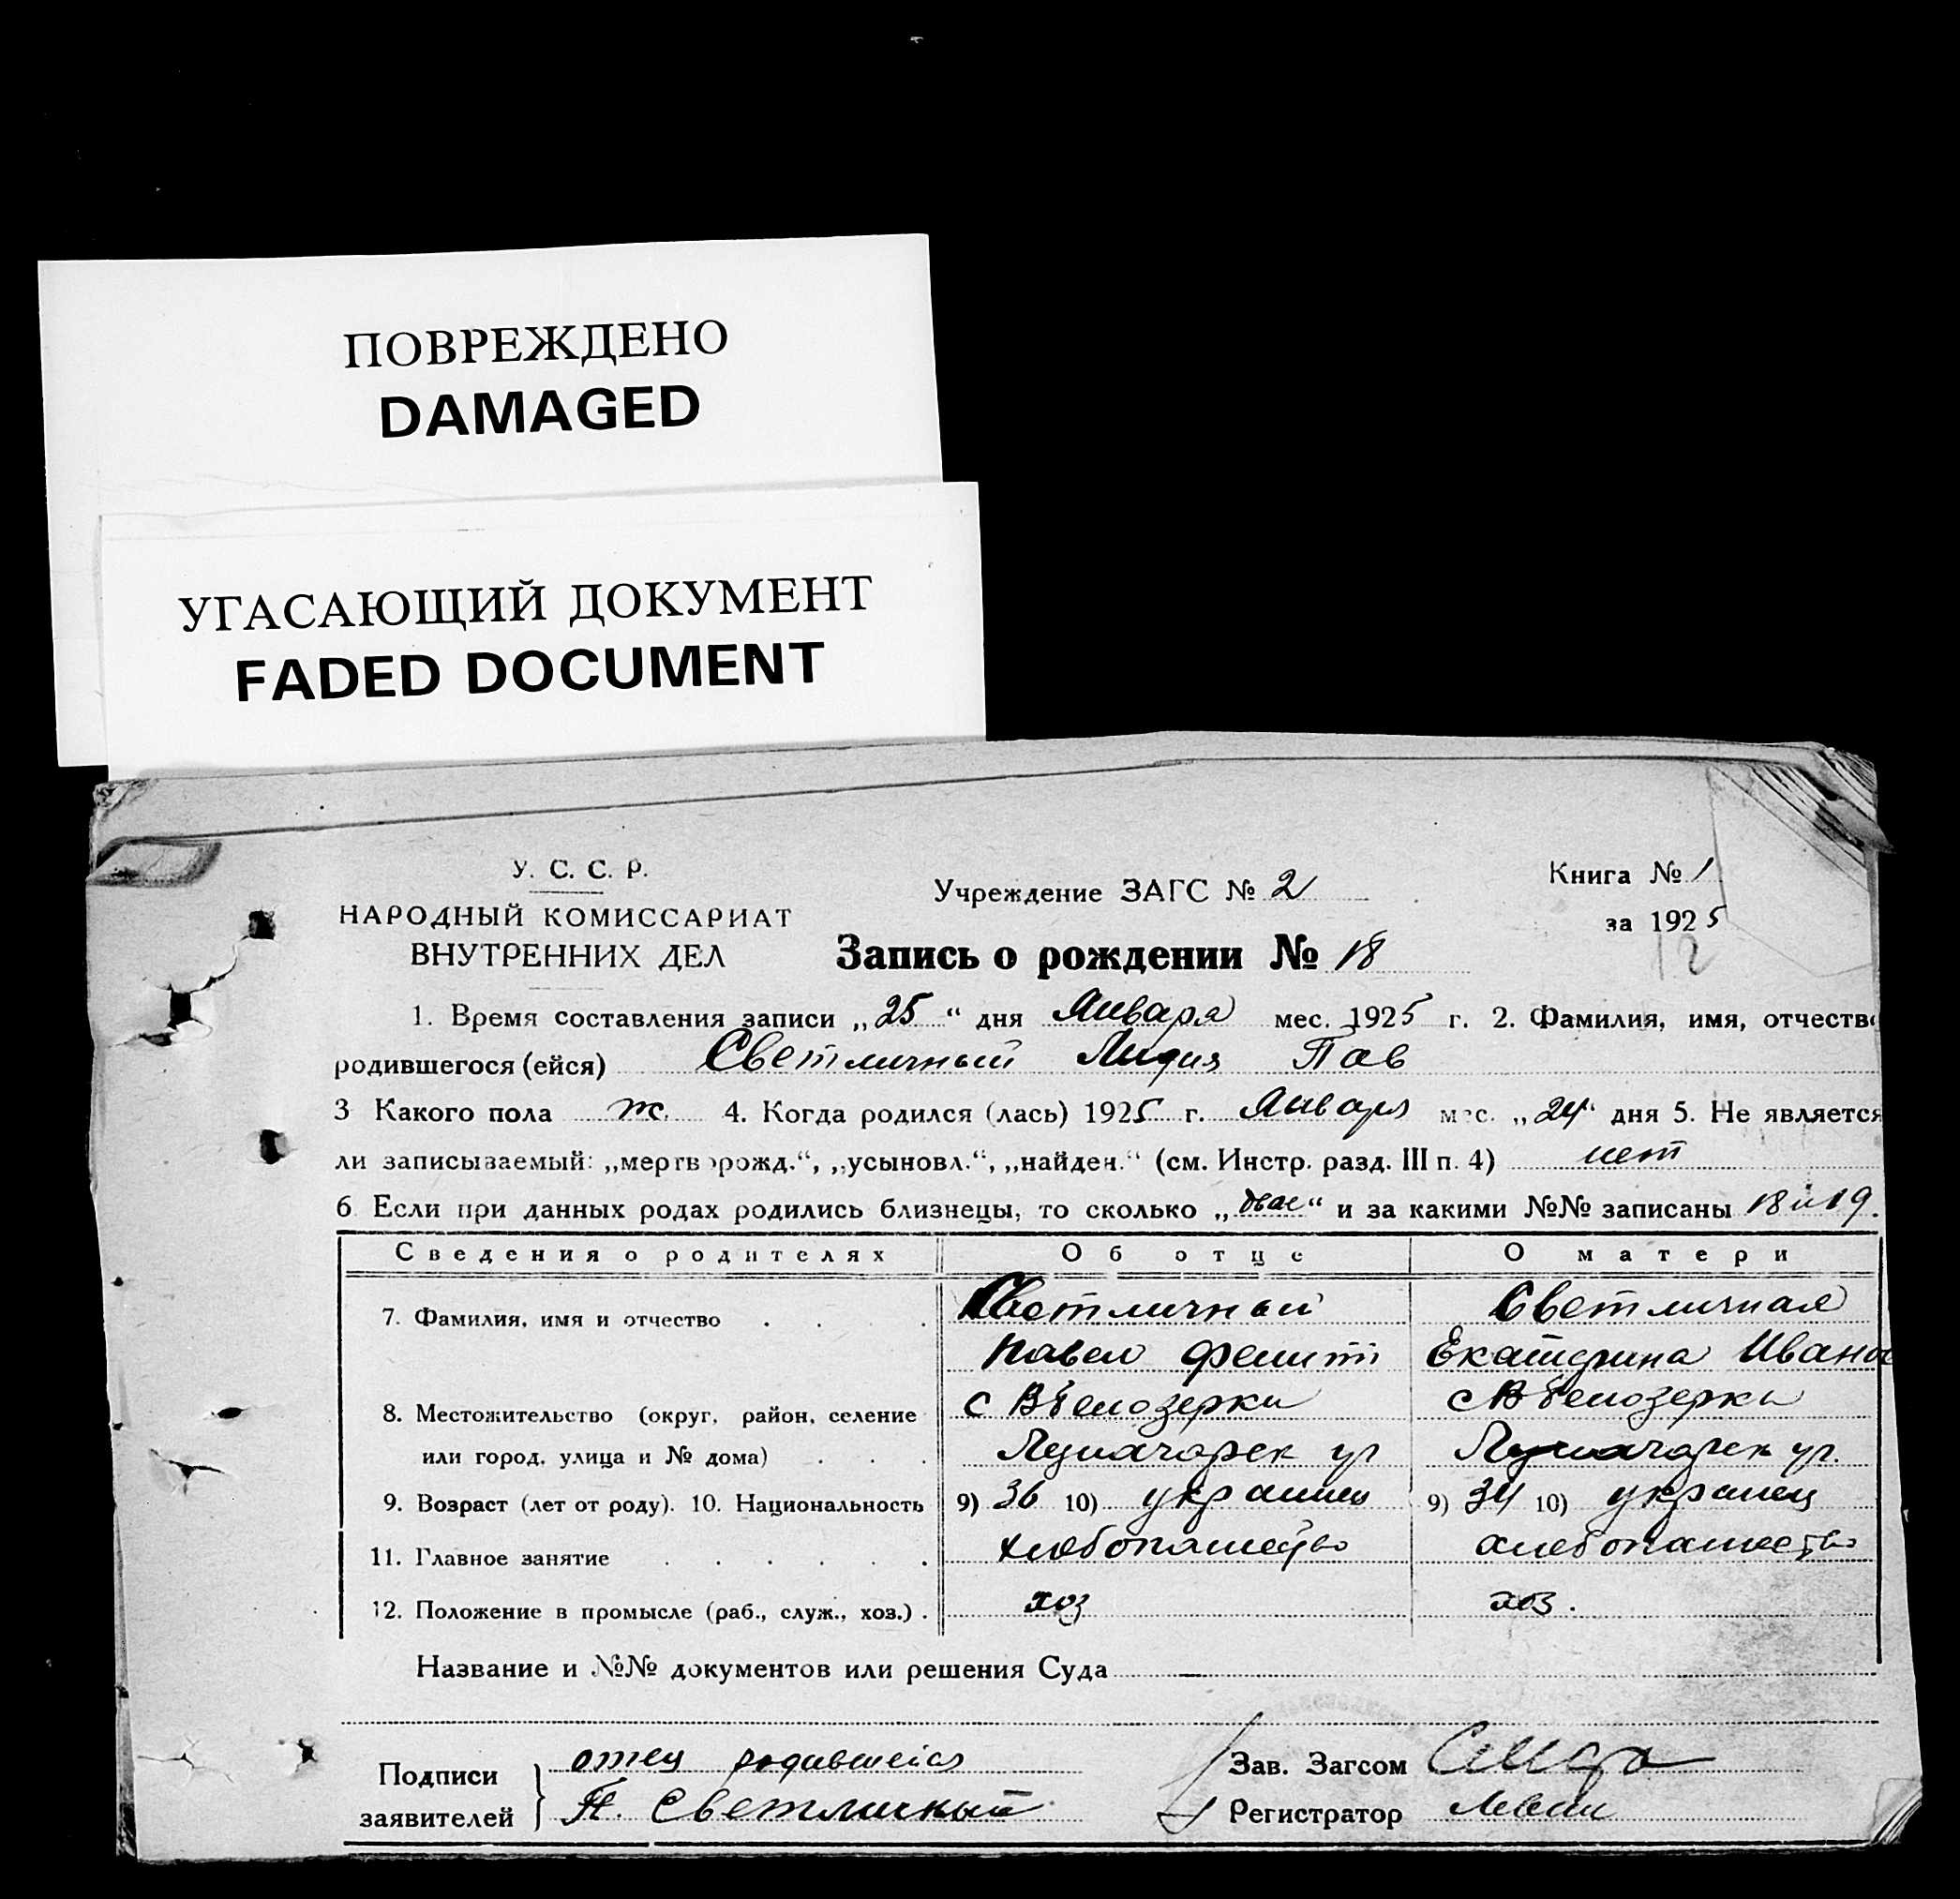 ПОВРЕЖДЕНО
DAMAGED
УГАСАЮЩИЙ ДОКУМЕНТ
FADED DOCUMENT
У. С. С. Р.
НАРОДНЫЙ КОМИССАРИАТ
ВНУТРЕННИХ ДЕЛ
Учреждение ЗАГС № 2
Книга № 1
за 1925
12
Запись о рождении № 18
1. Время составления записи „25“ дня Января мес. 1925 г. 2. Фамилия, имя, отчество
родившегося (ейся) Светличный Лидия Пав
3 Какого пола ж. 4. Когда родился (лась) 1925 г. Января мес. „24“ дня 5. Не является
ли записываемый: „мертворожд.“, „усыновл.“, „найден.“ (см. Инстр. разд. III п. 4) нет
6 Если при данных родах родились близнецы, то сколько „двое“ и за какими №№ записаны 18 и 19.
Сведения о родителях Об отце О матери
7. Фамилия, имя и отчество Светличный Светличная
Павел Екатерина Иванов
8. Местожительство (округ, район, селение с В белозерки с В белозерки
или город, улица и № дома) Луначарск ул Луначарск ул.
9. Возраст (лет от роду). 10. Национальность 9) 36 10) украинец 9) 34 10) украинец
11. Главное занятие хлебопашество хлебопашество
12. Положение в промысле (раб., служ., хоз.) хоз хоз.
Название и №№ документов или решения Суда
Подписи заявителей отец родившейся
П. Светличный
Зав. Загсом
Регистратор